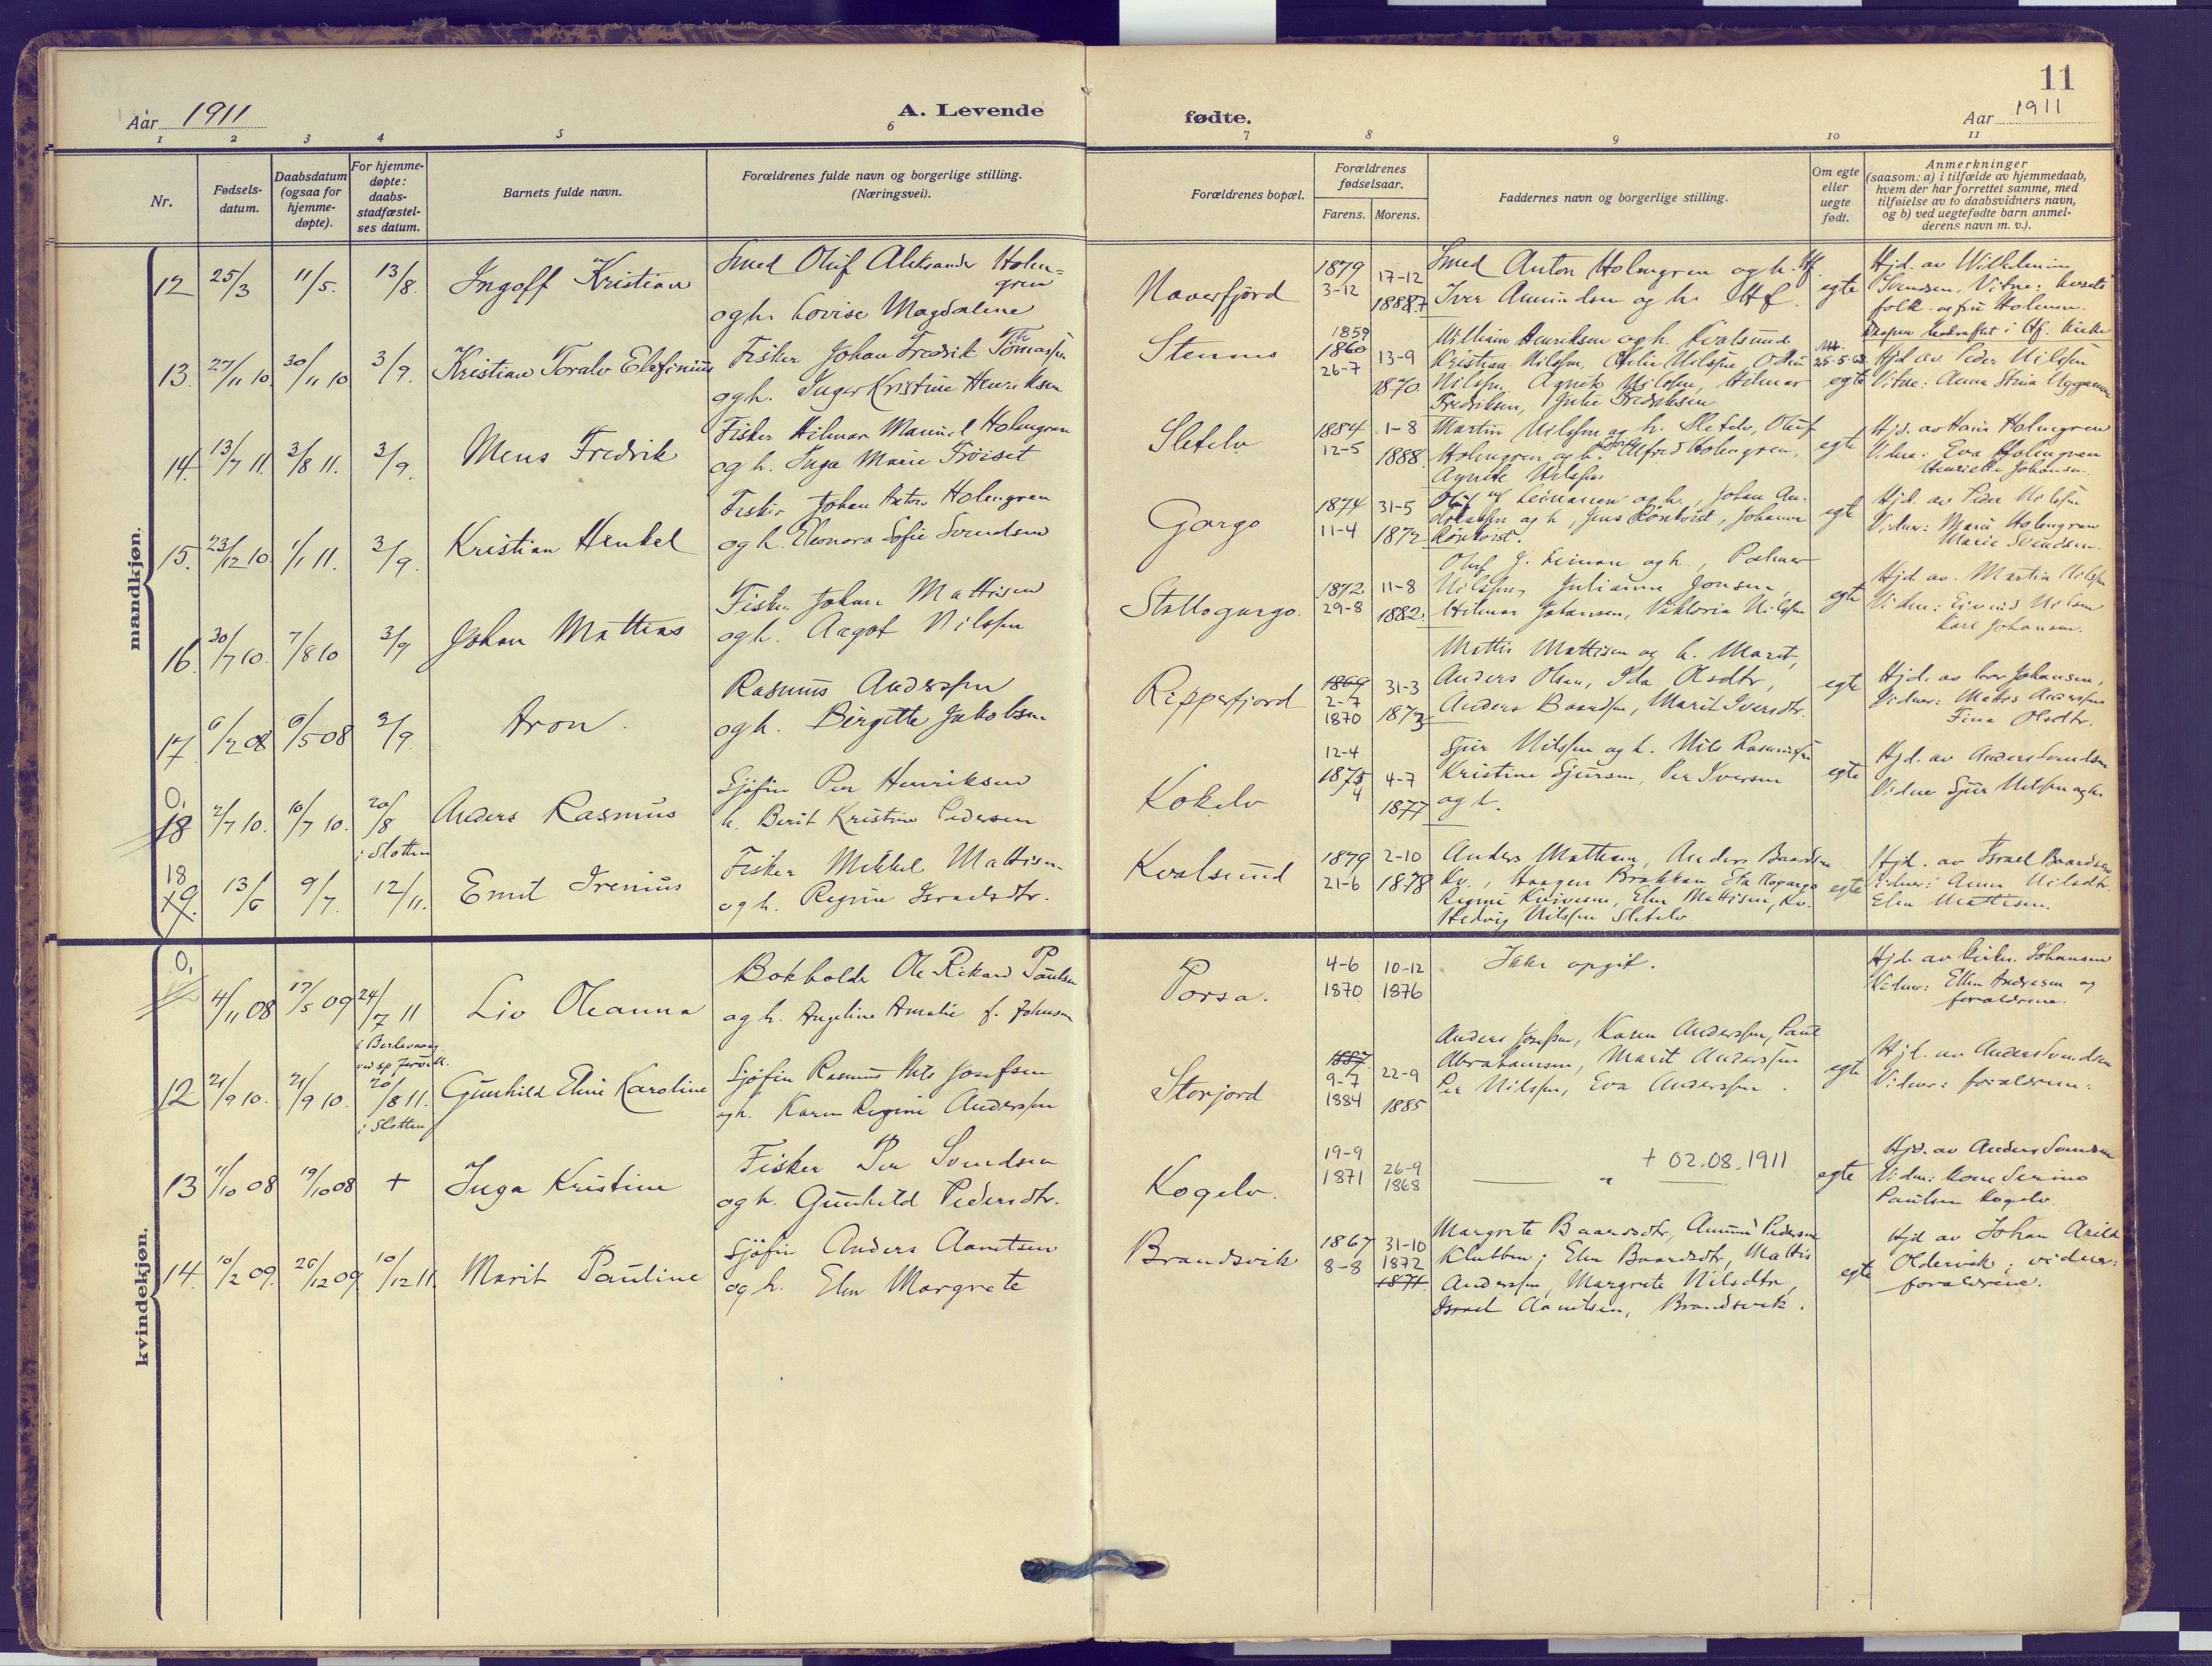 11
Aar 1911
A. Levende
fødte.
Aar 1911
1 2 3 4 5 6 7 8 9 10 11
Nr.
Fødsels-
datum.
Daabsdatum
(ogsaa for
hjemme-
døpte).
For hjemme-
døpte:
daabs-
stadfæstel-
ses datum.
Barnets fulde navn.
Forældrenes fulde navn og borgerlige stilling.
(Næringsvei).
Forældrenes bopæl.
Forældrenes
fødselsaar.
Farens. Morens.
Faddernes navn og borgerlige stilling.
Om egte
eller
uegte
født.
Anmerkninger
(saasom: a) i tilfælde av hjemmedaab,
hvem der har forrettet samme, med
tilføielse av to daabsvidners navn,
og b) ved uegtefødte barn anmel-
derens navn m. v.).
mandkjøn.
12 25/3 11/5. 13/8. Ingolf Kristian
Smed Oluf Aleksander Holm=
gren
og h. Lovise Magdalene
Naverfjord
1879
3-12
17-12
1888
Smed Anton Holmgren og h. Hf.
Iver Amundsen og h. Hf.
egte
Hjd. av
Svendsen, Vitne:
folk og fru Holmen.
13. 27/11 10 30/11 10 3/9. Kristian Toralv Elefinius
Fisker Johan Fredrik Tomassen
og h. Inger Kristine Henriksen
Stennes
1859
1860
26-7
13-9
1870
William Henriksen og h. Kvalsund
Kristian Nilssen, Nilssen
Nilssen, Agnete Nilssen, Hilmar
Fredriksen, Julie Fredriksen
25-5-68
egte
Hjd. av Peder Nilssen
Vitne: Anna Stina
14. 13/7 11. 3/8 11. 3/9. Mens Fredrik
Fisker Hilmar Manuel Holmgren
og h. Inga Marie Trøiset
Sletelv
1884
12-5
1-8
1888.
Martin Nilssen og h. Sletelv, Oluf
Holmgren og h. Alfred Holmgren,
Agnete Nilssen
egte
Hjd. av Hans Holmgren
Vidner: Eva Holmgren
Henriette Johansen.
15. 23/12 10. 1/1 11. 3/9. Kristian Henkel
Fisker Johan Anton Holmgren
og h. Eleonora Sofie Svendsen
Gargo
1874
11-4
31-5
1872
Leinanen og h., Johan An-
og h., Jens Rønkvist, Johanna
Rønkvist.
egte
Hjd. av Peder Nilssen
Vidner: Marie Holmgren
Marie Svendsen.
16. 30/7 10. 7/8 10 3/9 Johan Mattias
Fisker Johan Mattisen
og h. Aagot Nilssen
Stallogargo.
1872
29-8
11-8
1882.
Oluf J. Leinan og h., Palmar
Nilssen, Julianne Jonsen,
Hilmar Johansen, Viktoria Nilssen
egte
Hjd. av. Martin Nilssen
Vidner: Eivind Nilsen
Karl Johansen.
17. 6/2 08 6/5 08 3/9. Aron.
Rasmus Anderssen
og h. Birgitte Jakobsen
Repperfjord
1869
2-7
1870
31-3
1873
Mattis Mattisen og h. Marit,
Anders Olsen, Ida Olsdtr,
Anders Baardsen, Marit Iversdtr.
egte
Hjd. av Iver Johansen,
Vidner: Mattis Anderssen
Fina Olsdtr.
0,
18 2/7 10. 10/7 10. 20/8
i Slotten
Anders Rasmus
Sjøfin Per Henriksen
h. Berit Kristine Pedersen
Kokelv
12-4
1875
4
4-7
1877
Sjur Nilssen og h. Nils Rasmussen
Kristine Sjursen, Per Iversen
og h.
egte
Hjd. av Anders Svendsen
Vidner Sjur Nilssen og h.
18
19. 13/6 9/7. 12/11. Emil Irenius
Fisker Mikkel Mattisen
og h. Regine Israelsdtr.
Kvalsund
1879
21-6
2-10
1878
Anders Mattisen, Anders Baardsen
Kv., Haagen Brakkan Stallogargo
Regine, Elen Mattisen, Kv.
Hedvig Nilssen Sletelv
egte
Hjd. av Israel Baardsen
Vidner: Anna Nilsdtr.
Elen Mattisen.
kvindekjøn.
0,
4/11 08 17/5 09 24/7 11
i Berlevaag
Liv Oleanna
Bokholder Ole Rikard Paulsen
og h. Angeline Amalie f. Johnsen
Porsa.
4-6
1870
10-12
1876
Ikke opgit.
Hjd. av Johansen
Vidner: Ellen Andresen og
forældrene.
12 21/9 10. 21/9 10. 20/8 11.
i Slotten
Gunhild Eline Karoline
Sjøfin Rasmus Nils Josefsen
og h. Karen Regine Anderssen
Storjord
1887
9-7
1884
22-9
1885
Anders Josefsen, Karen Anderssen, Paul
Abrahamsen, Marit Anderssen
Per Nilssen, Eva Anderssen.
egte
Hjd. av Anders Svendsen
Vidner: forældrene.
13 11/10 08 19/10 08 + Inga Kristine
Fisker Per Svendsen
og h. Gunhild Pedersdtr.
Kogelv.
19-9
1871
26-9
1868
+ 02.08.1911
— " —
egte
Hjd. av Anders Svendsen
Vidner: kone Serine
Paulsen Kogelv.
14. 10/2 09. 26/12 09 10/12 11. Marit Pauline
Sjøfin Anders Aamtsen
og h. Elen Margrete
Brandsvik
1867
8-8
31-10
1872
1871
Margrete Baardsdtr, Amund Pedersen
Klubben; Elen Baardsdtr, Mattis
Anderssen, Margrete Nilsdtr,
Israel Aamtsen, Brandsvik.
egte
Hjd av Johan Arild
Oldervik; vidner:
forældrene.